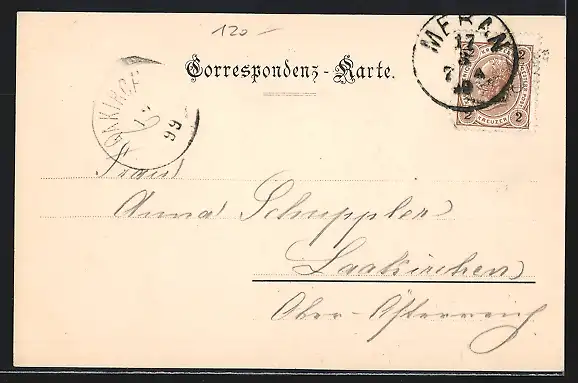 120-
Correspondenz-Karte.
MERAN
17
2
2 KREUZER 2
99
Frau
Anna Schuppler
Laakirchen
Ober-Österreich